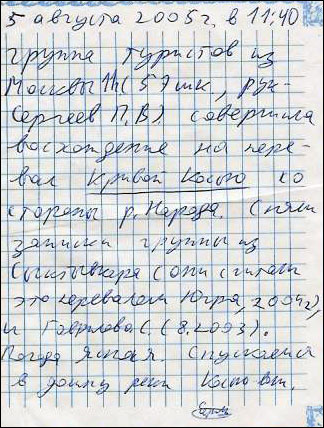 5 августа 2005г. в 11:40
группа туристов из
Москвы (579 шк., рук-
Сергеев П.В.) совершила
восхождение на пере-
вал Кривой Косью со
стороны р. Народа. Сняли
записки группы из
Сыктывкара (они считали
это перевалом Югра, 2004г.),
и Гаврилова С. (8.2003).
Погода ясная. Спускаемся
в долину реки Косью-Вож.